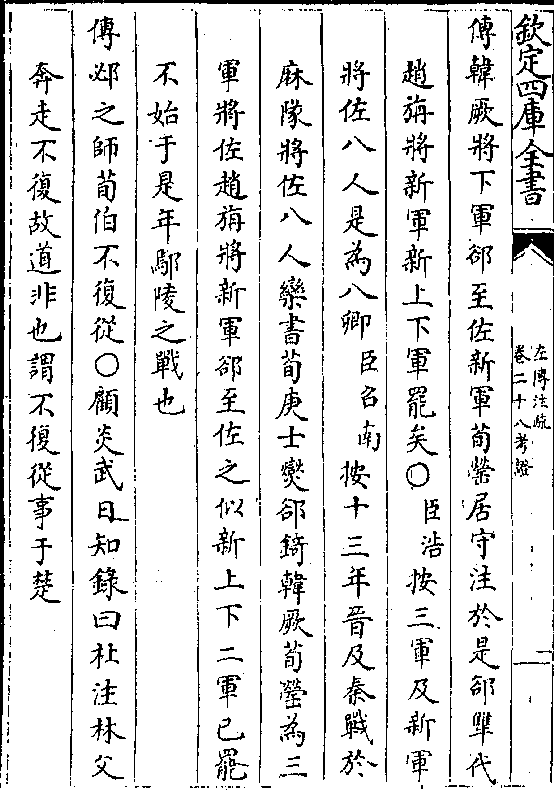 欽定四庫全書
左傳注疏
卷二十八考證
二
傳韓厥將下軍郤至佐新軍荀罃居守注於是郤犫代
趙旃將新軍新上下軍罷矣○臣浩按三軍及新軍
將佐八人是為八卿臣召南按十三年晉及秦戰於
麻隧將佐八人欒書荀庚士燮郤錡韓厥荀罃為三
軍將佐趙旃將新軍郤至佐之似新上下二軍已罷
不始于是年鄢陵之戰也
傳邲之師荀伯不復從○顧炎武日知錄曰杜注林父
奔走不復故道非也謂不復從事于楚